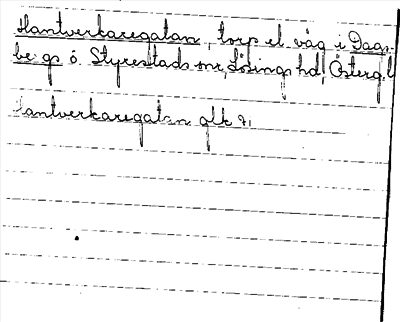 Hantverkaregatan, torp el. väg i Dags-
be gp ö. Styrestads snr, Lösings hd, Österg. l
Hantverkaregatan glk